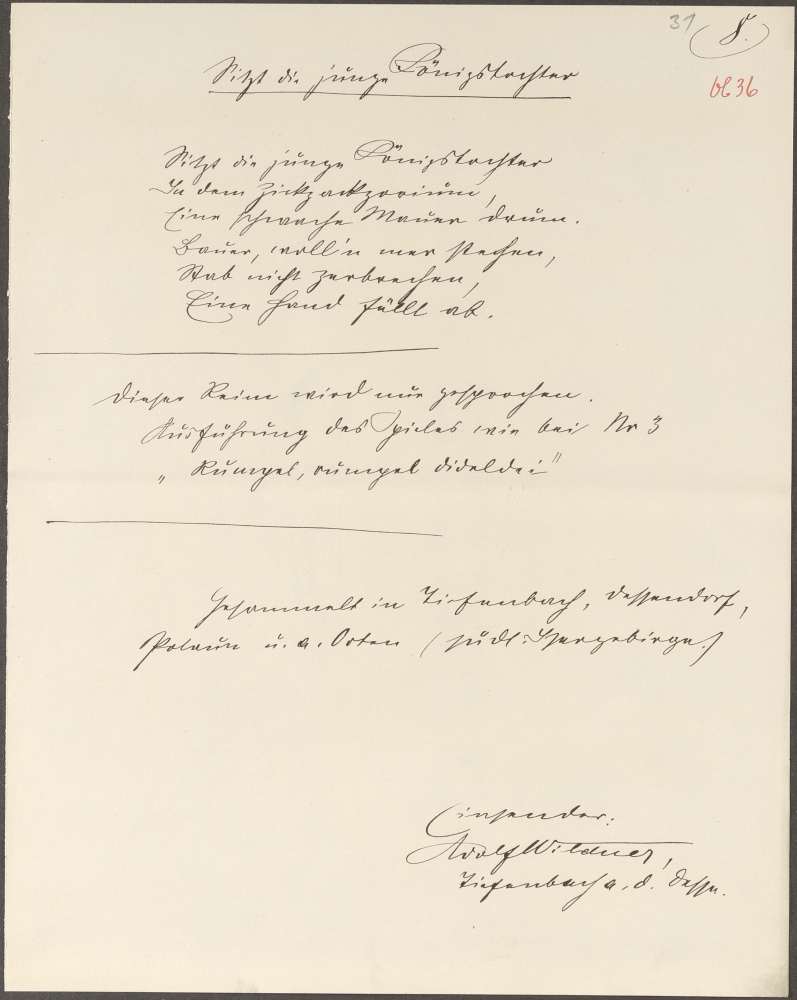 31 8.
Sitzt die junge Königstochter
b636
Sitzt die junge Königstochter
In dem Zickzackzorium,
Eine schwache Mauer drum.
Bauer, woll'n mer stechen,
Stab nicht zerbrechen,
Eine Hand fällt ab.
Dieser Reim wird nur gesprochen.
Ausführung des Spieles wie bei Nr 3
„Rumpel, rumpel dideldei"
Gesammelt in Tiefenbach, Dessendorf,
Polaun u. a. Orten (südl. Isergebirge.)
Einsender:
Adolf Wildner,
Tiefenbach a. d. Desse.